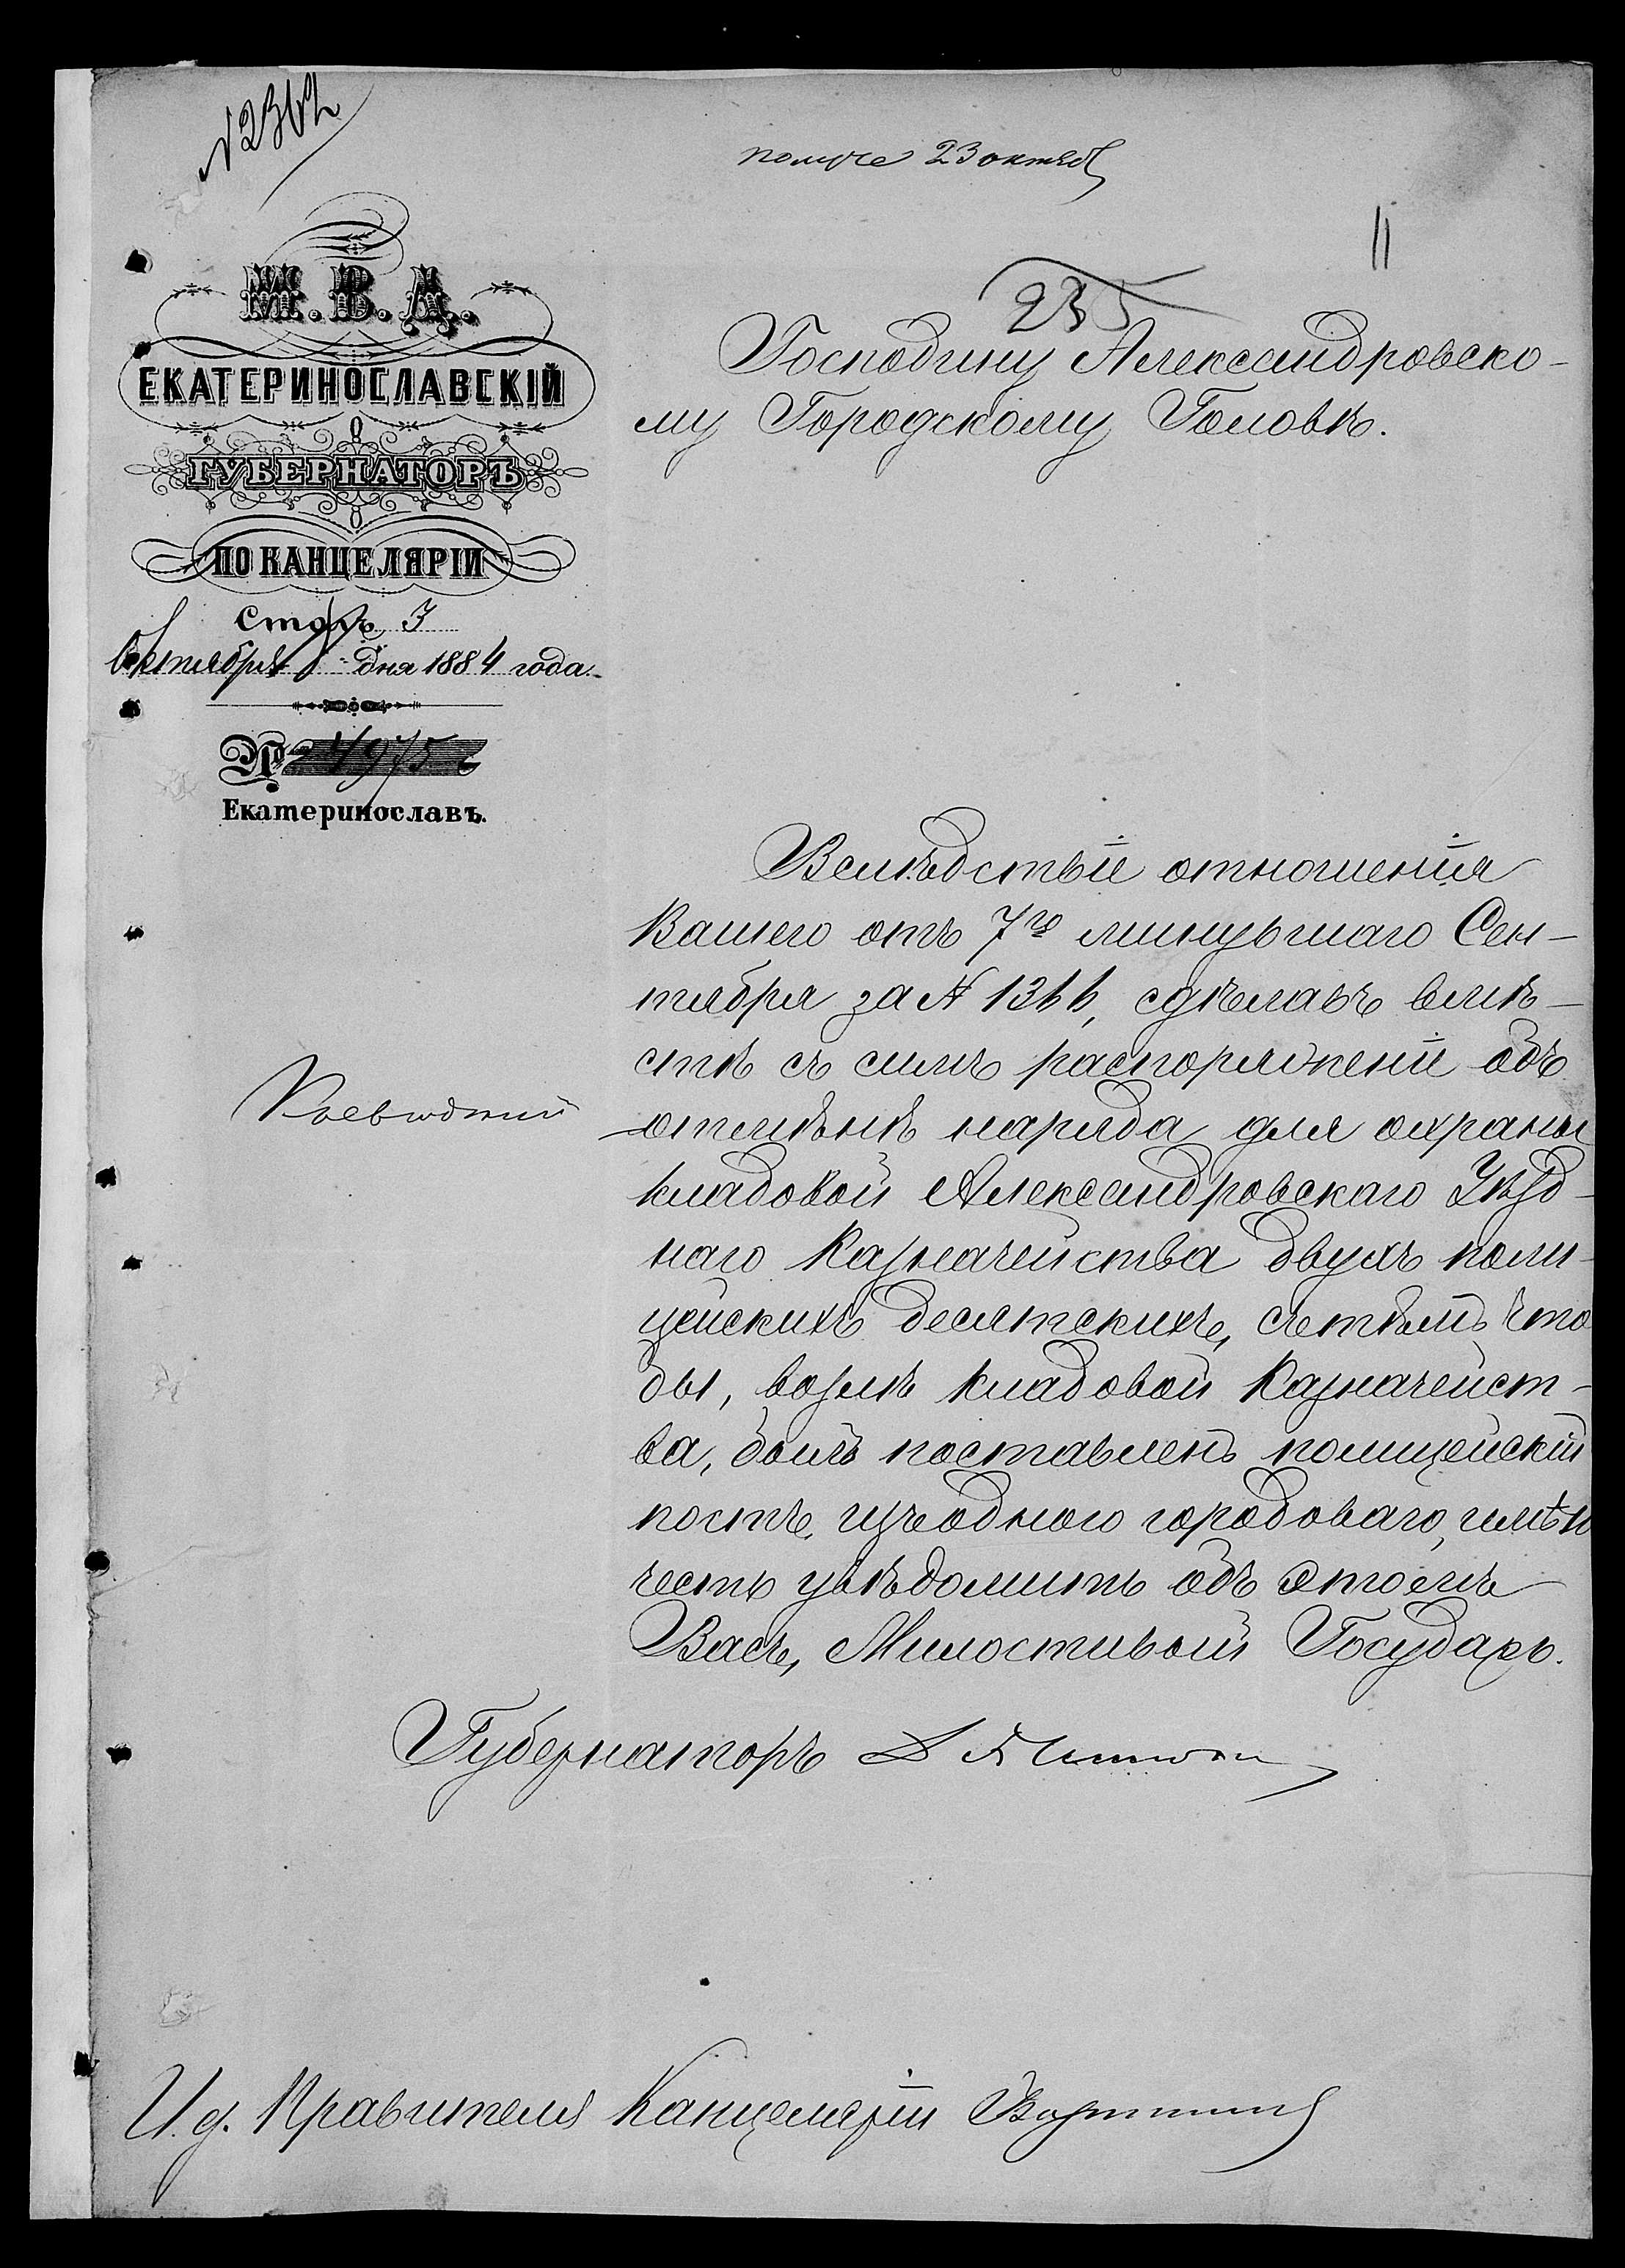 № 2362
получе 23 октяб
11
235
М. В. Д.
ЕКАТЕРИНОСЛАВСКІЙ
ГУБЕРНАТОРЪ
ПО КАНЦЕЛЯРІИ
Столъ 3
Октября дня 1884 года.
№ 24975
Екатеринославъ.
Господину Александровско-
му Городскому Головѣ.
Вслѣдствіе отношенія
Вашего отъ 7го минувшаго Сен-
тября за № 1366, сдѣлавъ вмѣ-
стѣ съ симъ распоряженіе объ
отмѣнѣ наряда для охраны
кладовой Александровскаго Уѣзд-
наго Казначейства двухъ поли-
цейскихъ десятскихъ, съ тѣмъ что
бы, возлѣ кладовой Казначейст-
ва, былъ поставленъ полицейскій
постъ, изъ одного городоваго, имѣю
честь увѣдомить объ этомъ
Васъ, Милостивый Государь.
Губернаторъ
И. д. Правителя Канцеляріи